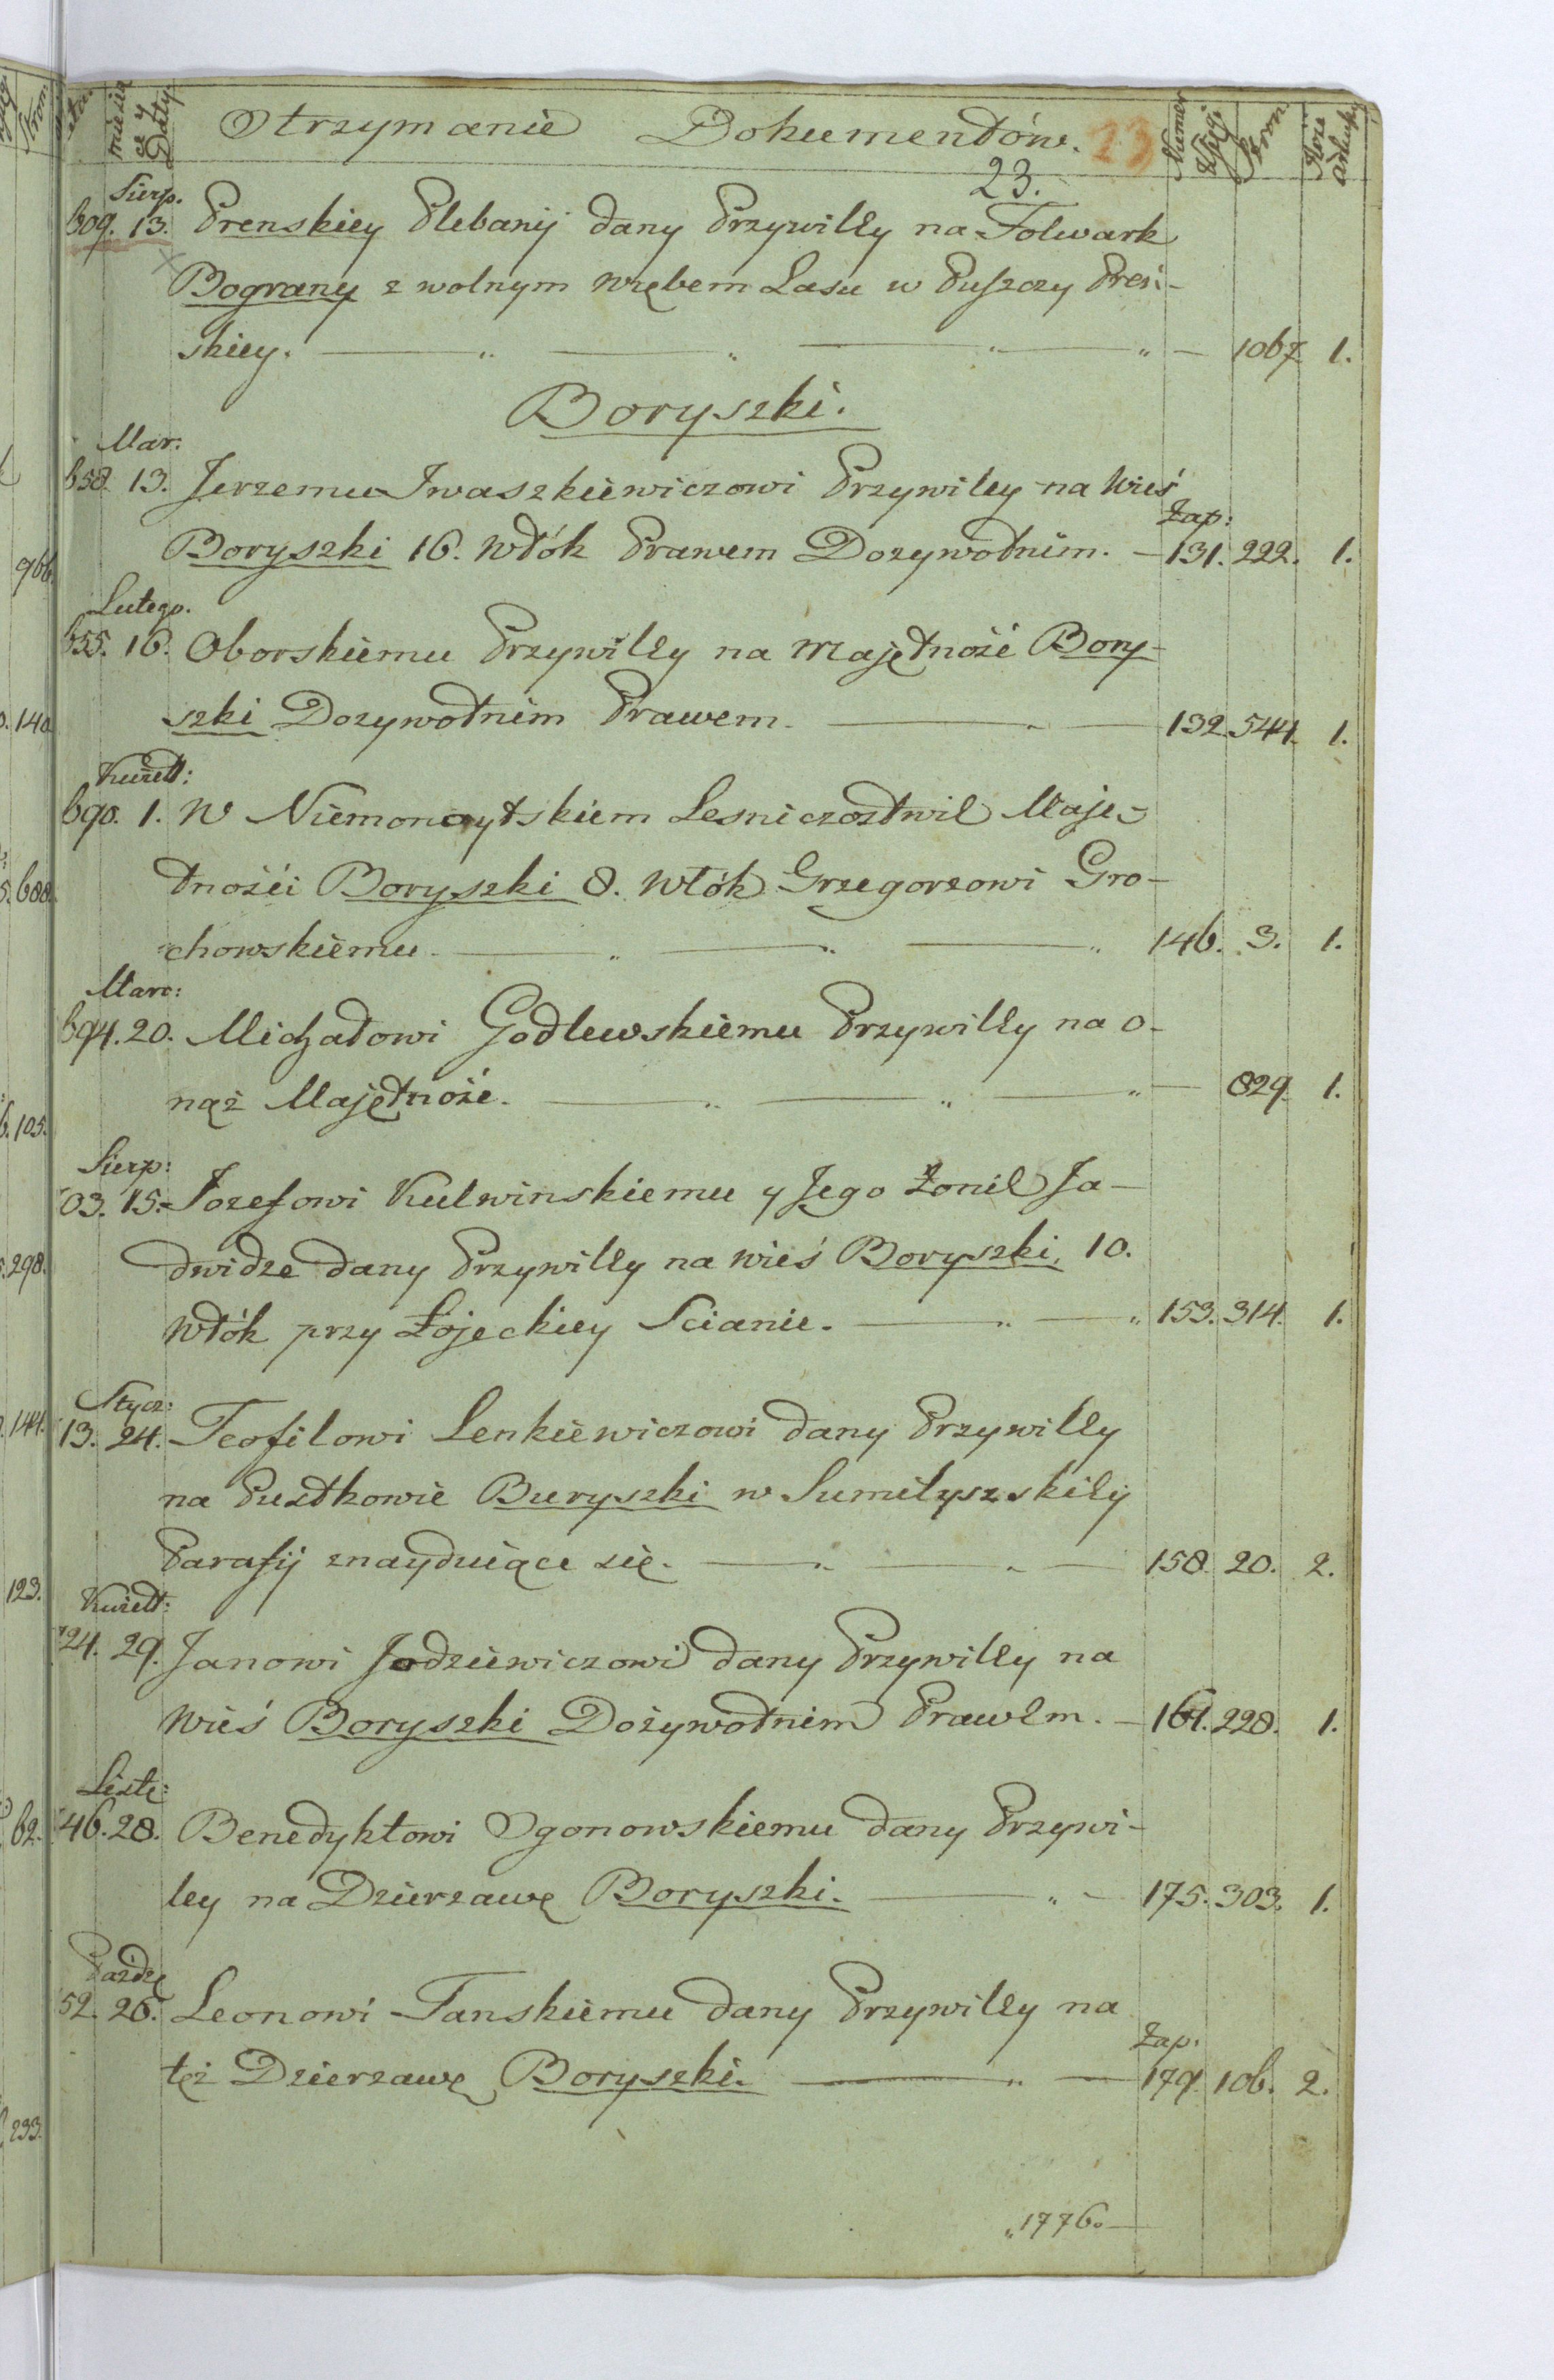 miesią
ce y
Daty
Otrzymanie Dokumentów. 23
Numer
Xięgi
Stron
23.
Sierp.
609. 13. Prenskiey Plebanij dany Przywilly na Folwark
Pograny z wolnym Wrębem Lasu w Puszczy Preń-
skiey. — „ — „ — „ — „ — 1067 1.
Boryszki.
Mar:
658. 13. Jerzemu Iwaszkiewiczowi Przywiley na Wieś
Zap:
Boryszki 16. Włók Prawem Dozywotnim. — 131. 222. 1.
Lutego.
655. 16. Oborskiemu Przywilly na Majętność Bory-
szki Dozywotnim Prawem. — „ — 132. 544. 1.
Kwiet:
690. 1. W Niemonoytskiem Lesniczostwie Maję-
tnośći Boryszki 8. Włók Grzegorzowi Gro-
chowskiemu. — „ — „ — „ 146. 3. 1.
Marc:
694. 20. Michałowi Godlewskiemu Przywilly na o-
nąż Majętność. — „ — „ — „ — 829. 1.
Sierp:
03. 15. Jozefowi Kulwinskiemu y Jego Żonie Ja-
dwidze dany Przywilly na wieś Boryszki, 10.
Włók przy Łojeckiey Scianie. — „ — „ 153. 314. 1.
Stycz:
13. 24. Teofilowi Lenkiewiczowi dany Przywilly
na Pustkowie Buryszki w Sumiłyszskiey
Parafij znayduiące się. — „ — „ — 158. 20. 2.
Kwiet:
24. 29. Janowi Jodziewiczowi dany Przywilly na
Wieś Boryszki Dożywotnim Prawem. — 161. 228. 1.
Listo:
46. 28. Benedyktowi Ogonowskiemu dany Przywi-
ley na Dzierzawę Boryszki. — „ — 175. 303. 1.
Pazdz
52. 26. Leonowi Tanskiemu dany Przywilly na
Zap.
też Dzierzawę Boryszki. — „ — 179. 106. 2.
„1776. —
966.
140.
688.
105.
298.
144.
123.
62.
233.